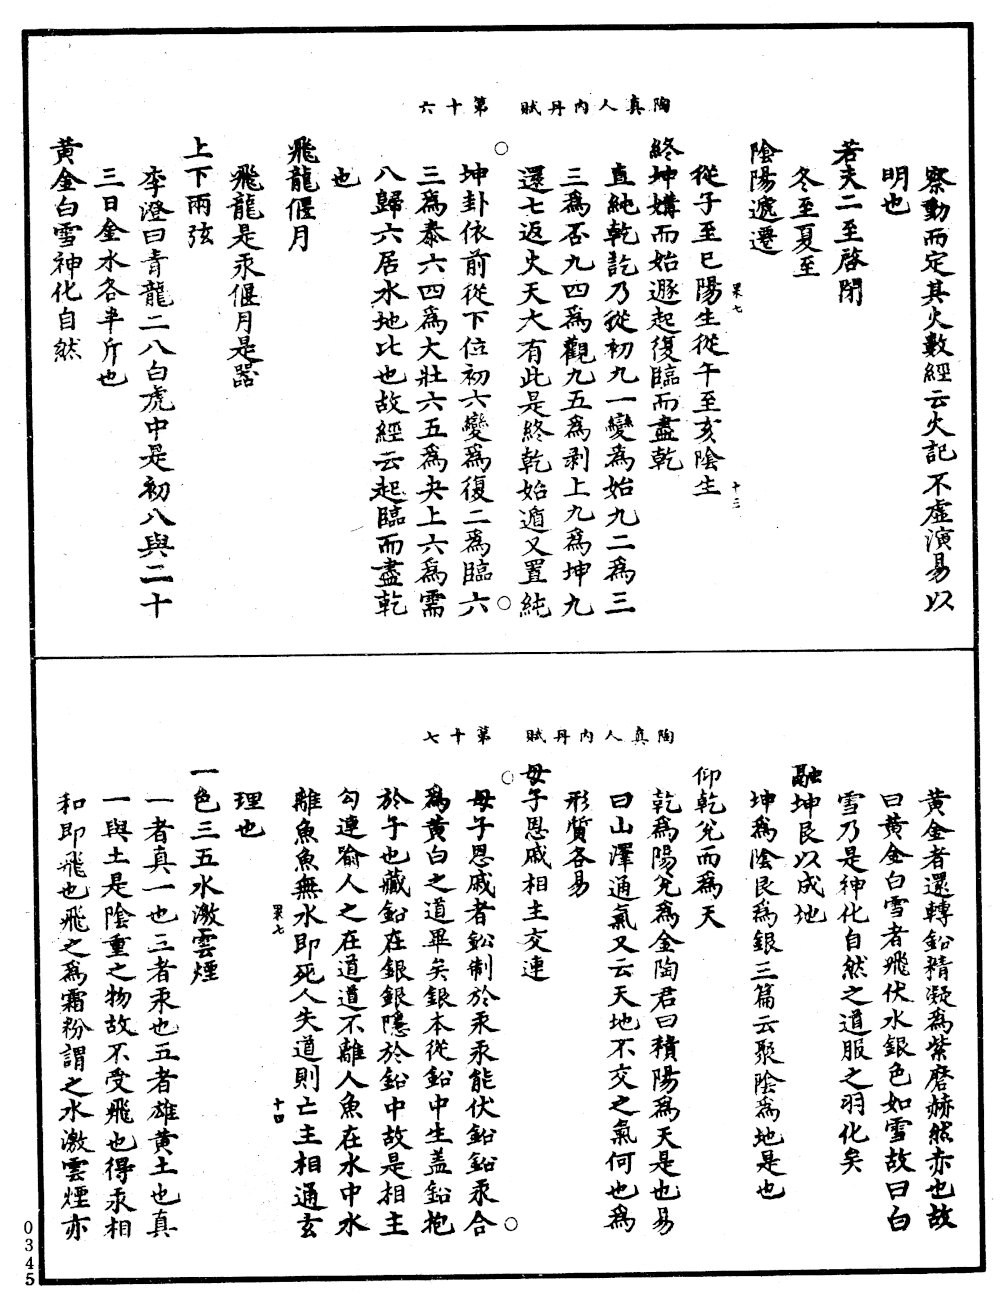 陶真人內丹賦　第十六
察動而定其火數經云火記不虛演易以
明也
若夫二至啓閉
冬至夏至
陰陽遞遷
果七　十三
從子至巳陽生從午至亥陰生
終坤媾而始遯起復臨而盡乾
直純乾訖乃從初九一變為始九二為三
三為否九四為觀九五為剥上九為坤九
還七返火天大有此是終乾始遁又置純
坤卦依前從下位初六變為復二為臨六
三為泰六四為大壯六五為夬上六為需
八歸六居水地比也故經云起臨而盡乾
也
飛龍偃月
飛龍是汞偃月是器
上下兩弦
李澄曰青龍二八白虎中是初八與二十
三日金水各半斤也
黃金白雪神化自然
陶真人內丹賦　第十七
黃金者還轉鉛精凝為紫磨赫然亦也故
曰黃金白雪者飛伏水銀色如雪故曰白
雪乃是神化自然之道服之羽化矣
融坤艮以成地
坤為陰艮為銀三篇云聚陰為地是也
仰乾兌而為天
乾為陽兌為金陶君曰積陽為天是也易
曰山澤通氣又云天地不交之氣何也為
形質各易
母子恩戚相主交連
母子恩戚者鈆制於汞汞能伏鉛鉛汞合
為黃白之道畢矣銀本從鉛中生盖鉛抱
於子也藏鉛在銀銀隱於鉛中故是相主
勾連喻人之在道道不離人魚在水中水
離魚魚無水即死人失道則亡主相通玄
果七　十四
理也
一色三五水激雲煙
一者真一也三者汞也五者雄黃土也真
一與土是陰重之物故不受飛也得汞相
和即飛也飛之為霜粉謂之水激雲煙亦
0345